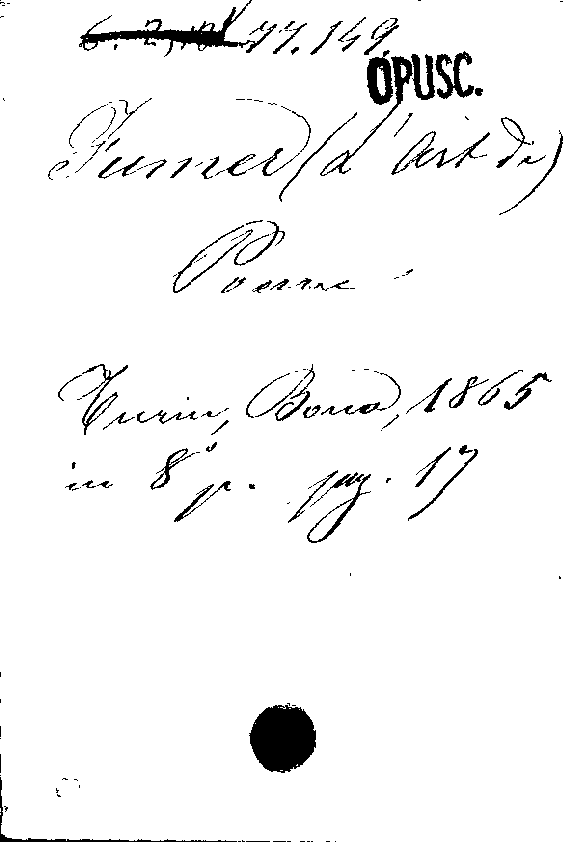 77.149
OPUSC.
Fumer (L'Art de)
Poeme
Turin, Bona, 1865
in 8° p. pag. 17